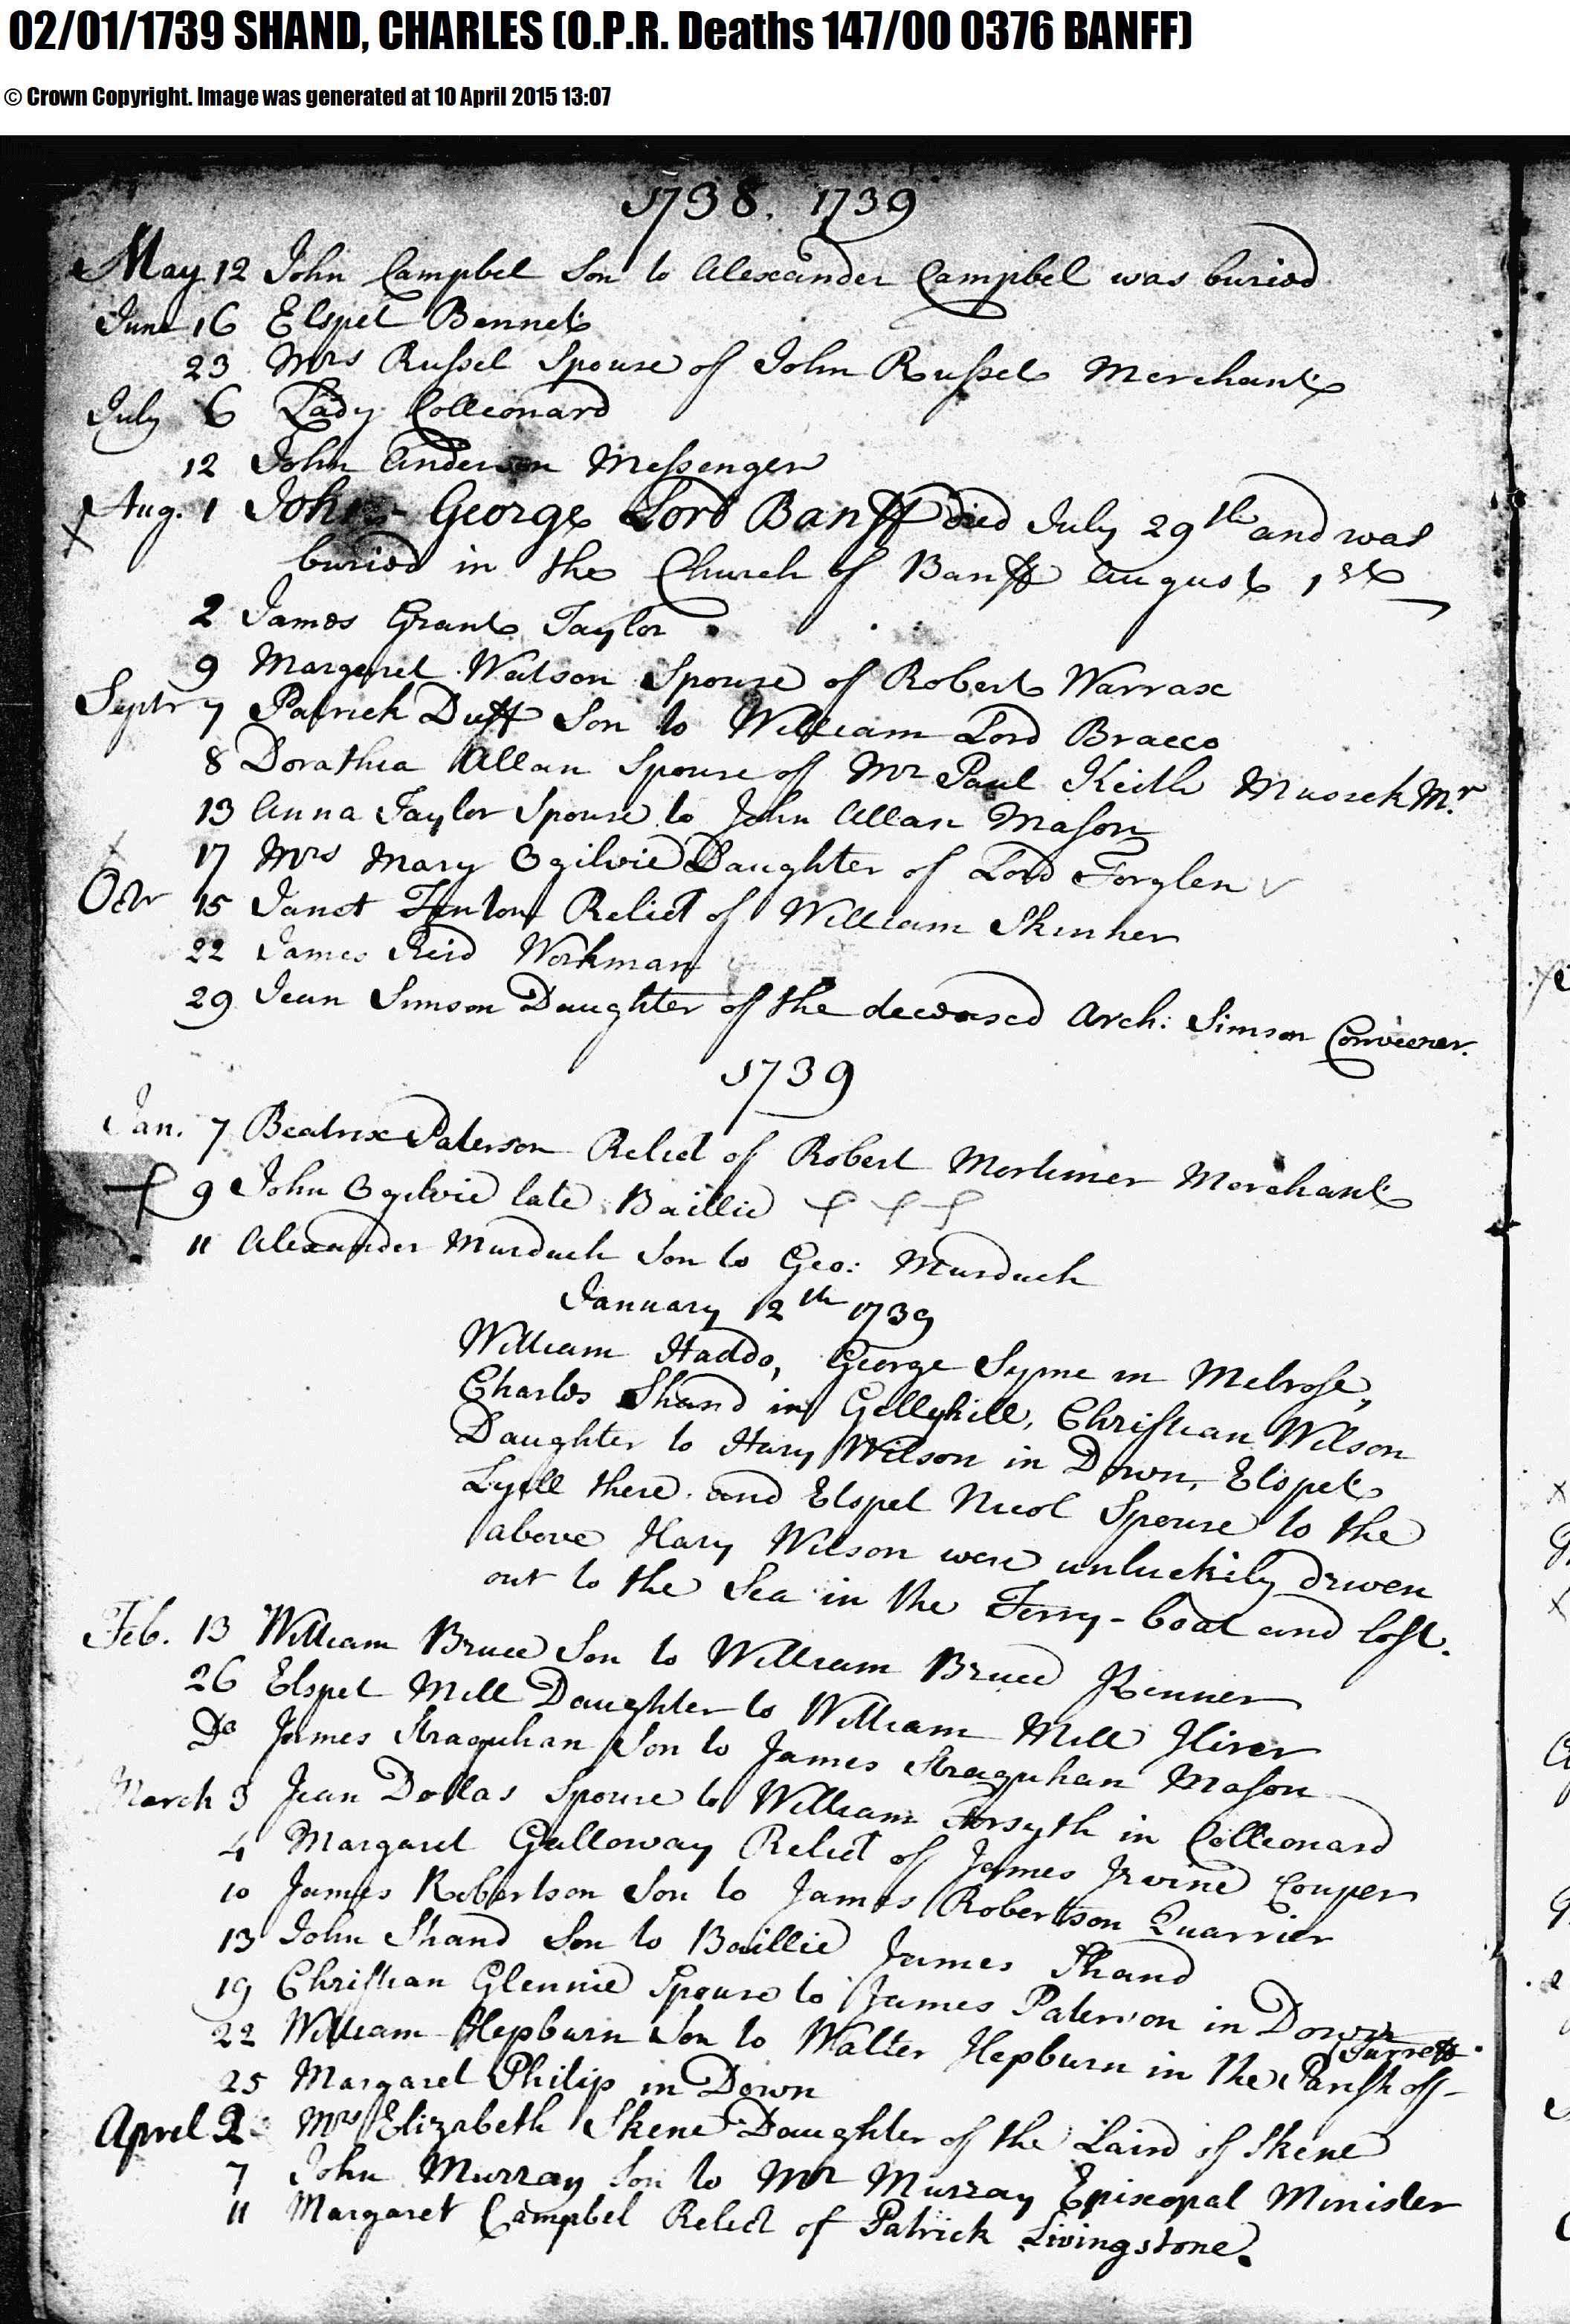 02/01/1739 SHAND, CHARLES (O.P.R. Deaths 147/00 0376 BANFF)
© Crown Copyright. Image was generated at 10 April 2015 13:07
1738. 1739
May 12 John Campbel Son to Alexander Campbel was buried
June 16 Elspet Bennet
23 Mrs Russel Spouse of John Russel Merchant
July 6 Lady Colleonard
12 John Anderson Messenger
Aug. 1 John-George Lord Banff died July 29th and was
buried in the Church of Banff August 1st
2 James Grant Taylor
9 Margaret Watson Spouse of Robert Warrax
Septr 7 Patrick Duff Son to William Lord Bracco
8 Dorathea Allan Spouse of Mr Paul Keith Musick Mr
13 Anna Taylor Spouse to John Allan Mason
17 Mrs Mary Ogilvie Daughter of Lord Forglen
Octr 15 Janet Finton Relict of William Skinner
22 James Reid Workman
29 Jean Simson Daughter of the deceased Arch: Simson Conveener.
1739
Jan. 7 Beatrix Paterson Relict of Robert Mortimer Merchant
9 John Ogilvie late Baillie
11 Alexander Murduch Son to Geo: Murduch
January 12th 1739
William Haddo, George Syme in Melrose,
Charles Shand in Gellyhill, Christian Wilson
Daughter to Hary Wilson in Down, Elspet
Lyell there and Elspet Nicol Spouse to the
above Hary Wilson were unluckily driven
out to the Sea in the Ferry-boat and lost.
Feb. 13 William Bruce Son to William Bruce
26 Elspet Mill Daughter to William Mill Hirer
Do James Straquhan Son to James Straquhan Mason
March 3 Jean Dollas Spouse to William Forsyth in Colleonard
4 Margaret Galloway Relict of James Irvine Couper
10 James Robertson Son to James Robertson Quarrier
13 John Shand Son to Baillie James Shand
19 Christian Glennie Spouse to James Paterson in Down
22 William Hepburn Son to Walter Hepburn in the Parish of Turreff.
25 Margaret Philip in Down
Aprel 2 Mrs Elizabeth Skene Daughter of the Laird of Skene
7 John Murray Son to Mr Murray Episcopal Minister
11 Margaret Campbel Relict of Patrick Livingstone.